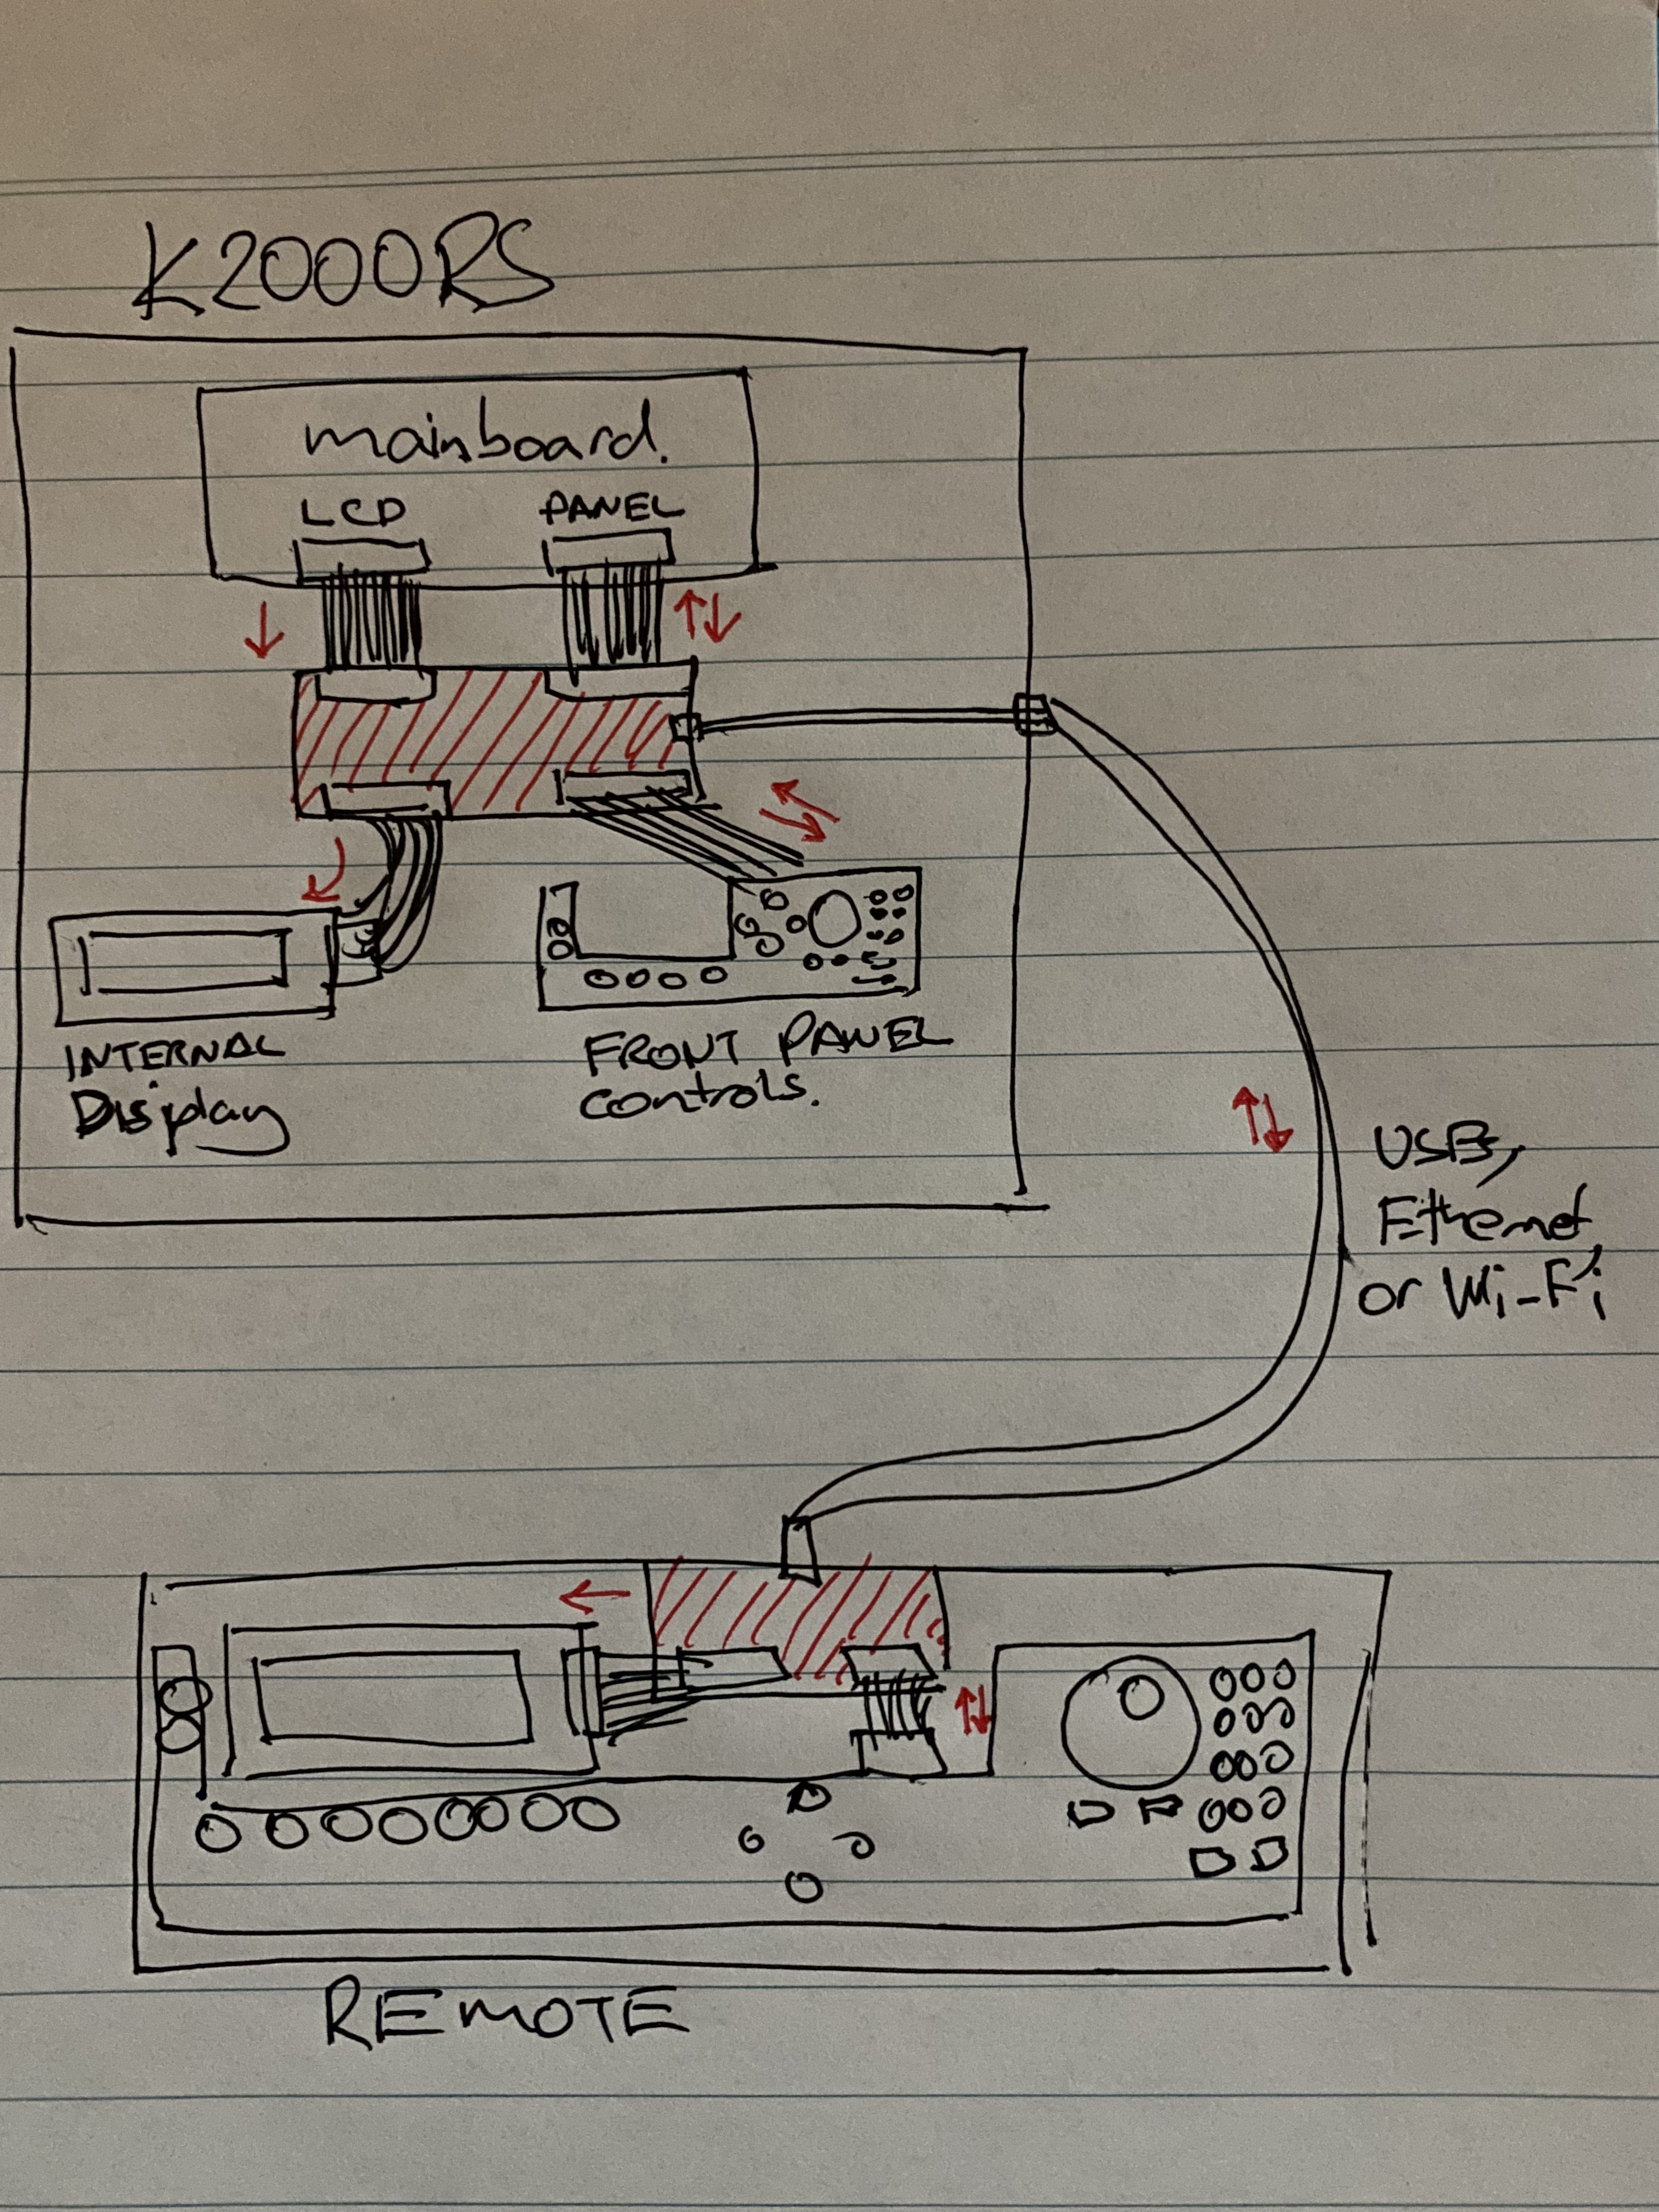 K2000RS
mainboard.
LCD
PANEL
INTERNAL
Display
FRONT PANEL
controls.
USB,
Ethernet,
or Wi-Fi
REMOTE